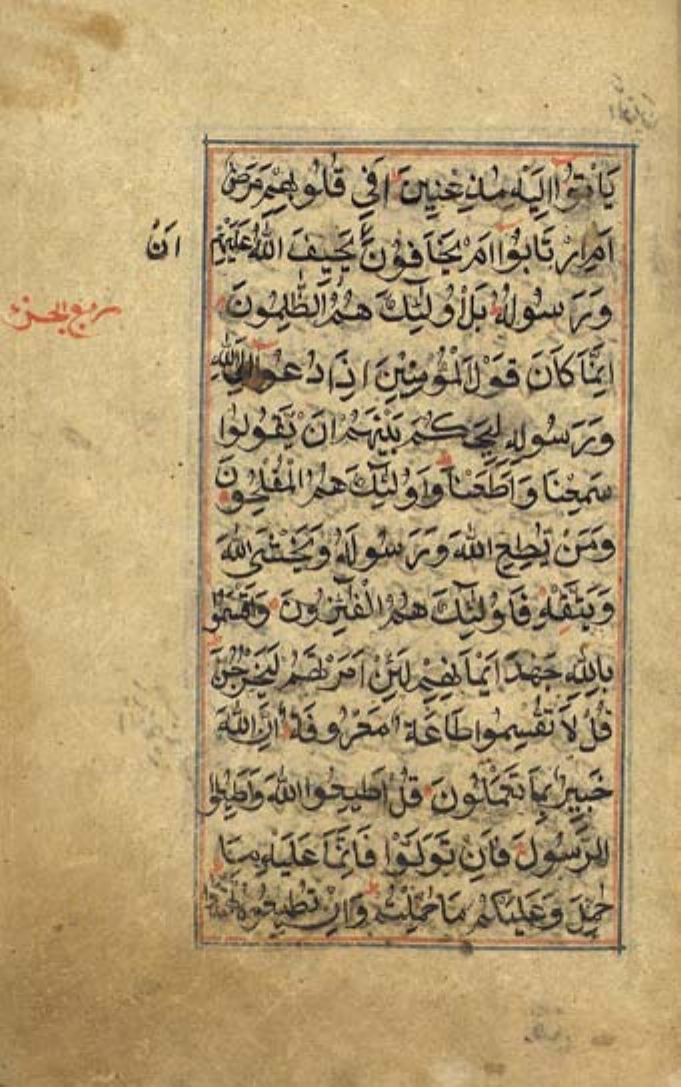 يَأْتُوا اِلَيْهِ مُذْعِنِينَ اَفِي قُلُوبِهِمْ مَرَضٌ
اَمِ ارْتَابُوا اَمْ يَخَافُونَ يَحِيفَ اللّٰهُ عَلَيْهِمْ
اَنْ
وَرَسُولُهُ بَلْ اُولٰئِكَ هُمُ الظَّالِمُونَ
ربع الحزب
اِنَّمَا كَانَ قَوْلَ الْمُؤْمِنِينَ اِذَا دُعُوا اِلَى اللّٰهِ
وَرَسُولِهِ لِيَحْكُمَ بَيْنَهُمْ اَنْ يَقُولُوا
سَمِعْنَا وَاَطَعْنَا وَاُولٰئِكَ هُمُ الْمُفْلِحُونَ
وَمَنْ يُطِعِ اللّٰهَ وَرَسُولَهُ وَيَخْشَ اللّٰهَ
وَيَتَّقْهِ فَاُولٰئِكَ هُمُ الْفَائِزُونَ وَاَقْسَمُوا
بِاللّٰهِ جَهْدَ اَيْمَانِهِمْ لَئِنْ اَمَرْتَهُمْ لَيَخْرُجُنَّ
قُلْ لَا تُقْسِمُوا طَاعَةٌ مَعْرُوفَةٌ اِنَّ اللّٰهَ
خَبِيرٌ بِمَا تَعْمَلُونَ قُلْ اَطِيعُوا اللّٰهَ وَاَطِيعُوا
الرَّسُولَ فَاِنْ تَوَلَّوْا فَاِنَّمَا عَلَيْهِ مَا
حُمِّلَ وَعَلَيْكُمْ مَا حُمِّلْتُمْ وَاِنْ تُطِيعُوهُ تَهْتَدُوا